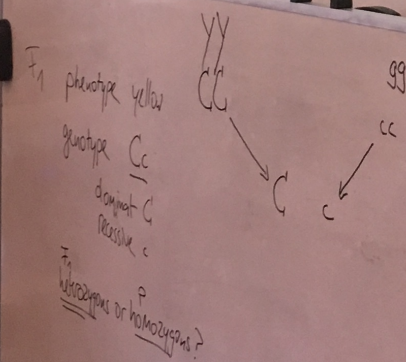 YY
gg
F1 phenotype yellow
CC
cc
genotype Cc
C
c
dominat C
recessive c
F1
P
hetrozygous or homozygous?